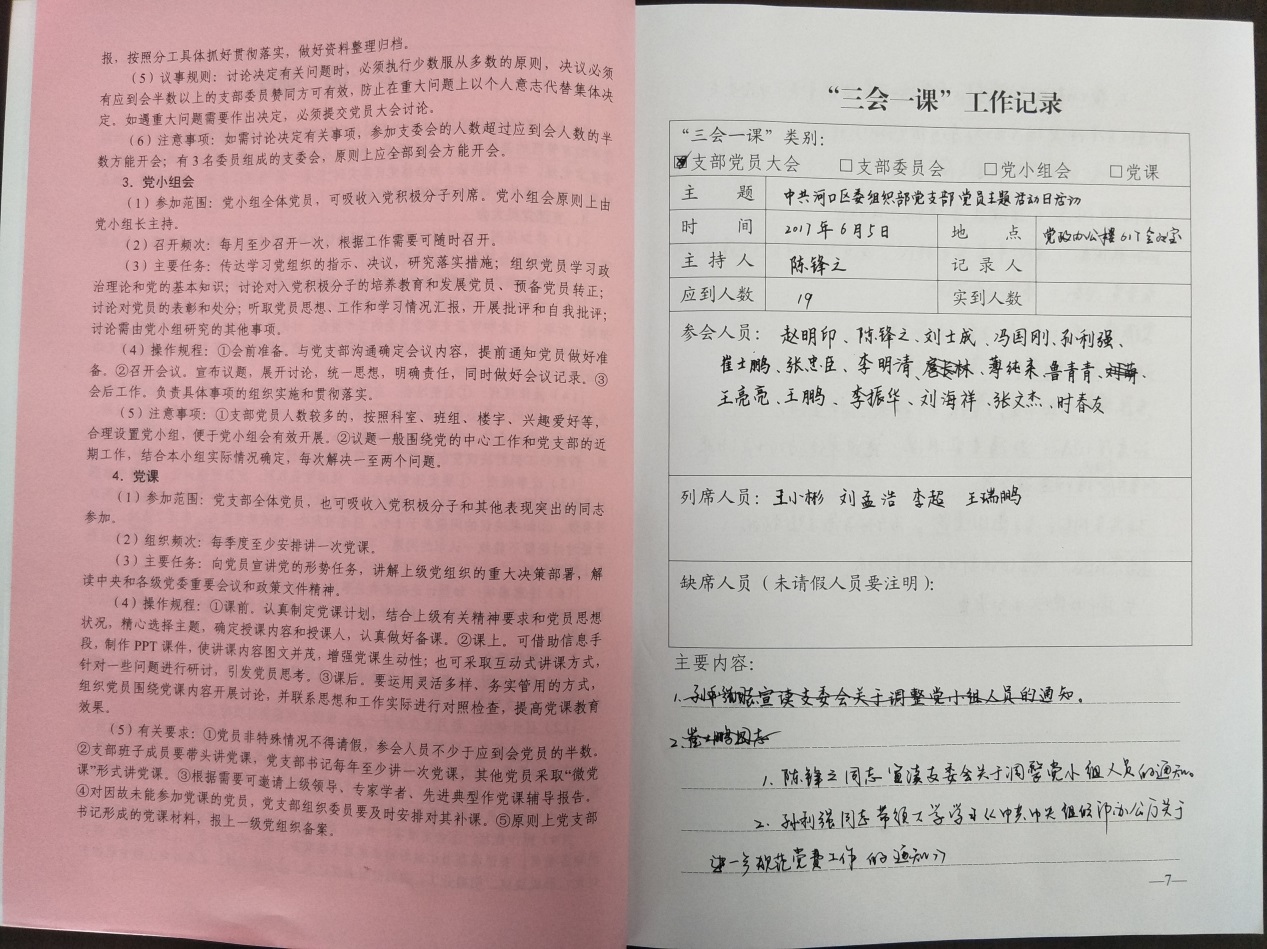 报，按照分工具体抓好贯彻落实，做好资料整理归档。
（5）议事规则：讨论决定有关问题时，必须执行少数服从多数的原则，决议必须
有应到会半数以上的支部委员赞同方可有效，防止在重大问题上以个人意志代替集体决
定。如遇重大问题需要作出决定，必须提交党员大会讨论。
（6）注意事项：如需讨论决定有关事项，参加支委会的人数超过应到会人数的半
数方能开会；有3名委员组成的支委会，原则上应全部到会方能开会。
3．党小组会
（1）参加范围：党小组全体党员，可吸收入党积极分子列席。党小组会原则上由
党小组长主持。
（2）召开频次：每月至少召开一次，根据工作需要可随时召开。
（3）主要任务：传达学习党组织的指示、决议，研究落实措施；组织党员学习政
治理论和党的基本知识；讨论对入党积极分子的培养教育和发展党员、预备党员转正；
讨论对党员的表彰和处分；听取党员思想、工作和学习情况汇报，开展批评和自我批评；
讨论需由党小组研究的其他事项。
（4）操作规程：①会前准备。与党支部沟通确定会议内容，提前通知党员做好准
备。②召开会议。宣布议题，展开讨论，统一思想，明确责任，同时做好会议记录。③
会后工作。负责具体事项的组织实施和贯彻落实。
（5）注意事项：①支部党员人数较多的，按照科室、班组、楼宇、兴趣爱好等，
合理设置党小组，便于党小组会有效开展。②议题一般围绕党的中心工作和党支部的近
期工作，结合本小组实际情况确定，每次解决一至两个问题。
4．党课
（1）参加范围：党支部全体党员，也可吸收入党积极分子和其他表现突出的同志
参加。
（2）组织频次：每季度至少安排讲一次党课。
（3）主要任务：向党员宣讲党的形势任务，讲解上级党组织的重大决策部署，解
读中央和各级党委重要会议和政策文件精神。
（4）操作规程：①课前。认真制定党课计划，结合上级有关精神要求和党员思想
状况，精心选择主题，确定授课内容和授课人，认真做好备课。②课上。可借助信息手
段，制作PPT课件，使讲课内容图文并茂，增强党课生动性；也可采取互动式讲课方式，
针对一些问题进行研讨，引发党员思考。③课后。要运用灵活多样、务实管用的方式，
组织党员围绕党课内容开展讨论，并联系思想和工作实际进行对照检查，提高党课教育
效果。
（5）有关要求：①党员非特殊情况不得请假，参会人员不少于应到会党员的半数。
②支部班子成员要带头讲党课，党支部书记每年至少讲一次党课，其他党员采取“微党
课”形式讲党课。③根据需要可邀请上级领导、专家学者、先进典型作党课辅导报告。
④对因故未能参加党课的党员，党支部组织委员要及时安排对其补课。⑤原则上党支部
书记形成的党课材料，报上一级党组织备案。
“三会一课”工作记录
“三会一课”类别：
☑支部党员大会 □支部委员会 □党小组会 □党课
主题 中共河口区委组织部党支部党员主题活动日活动
时间 2017年6月5日 地点 党政办公楼617会议室
主持人 陈锋之 记录人
应到人数 19 实到人数
参会人员：赵明印、陈锋之、刘士成、冯国刚、孙利强、
崔士鹏、张忠臣、李明清、林、薄纯来、鲁青青、
王亮亮、王鹏、李振华、刘海祥、张文杰、时春友
列席人员：王小彬 刘孟浩 李超 王瑞鹏
缺席人员（未请假人员要注明）：
主要内容：
1.宣读支委会关于调整党小组人员的通知。
2.崔士鹏同志
1.陈锋之同志宣读支委会关于调整党小组人员的通知。
2.孙利强同志带领大学学习《中共中央组织部办公厅关于
进一步规范党费工作的通知》
—7—